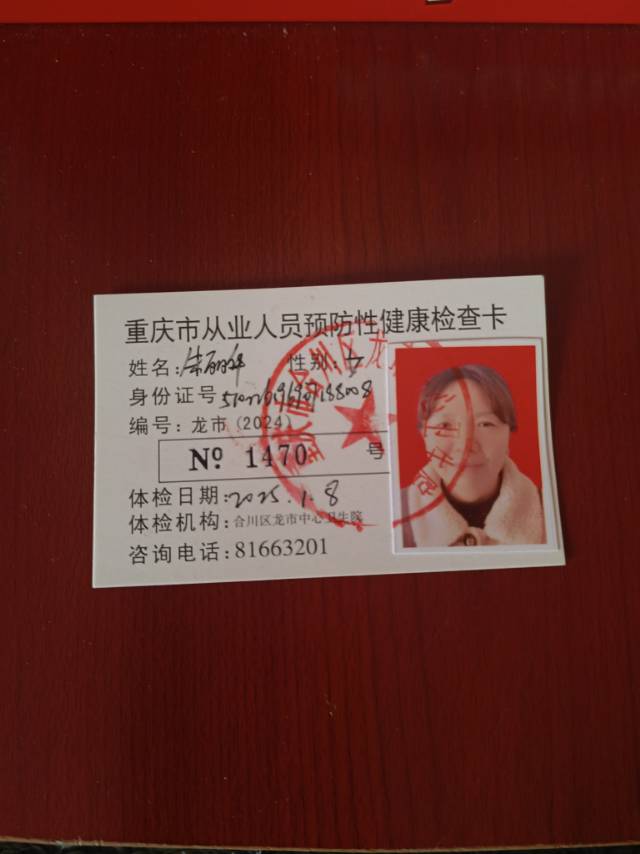 重庆市从业人员预防性健康检查卡
姓名: 朱丽华 性别: 女
身份证号
编号: 龙市 (2024)
Nº 1470 号
体检日期: 2025.1.8
体检机构: 合川区龙市中心卫生院
咨询电话: 81663201